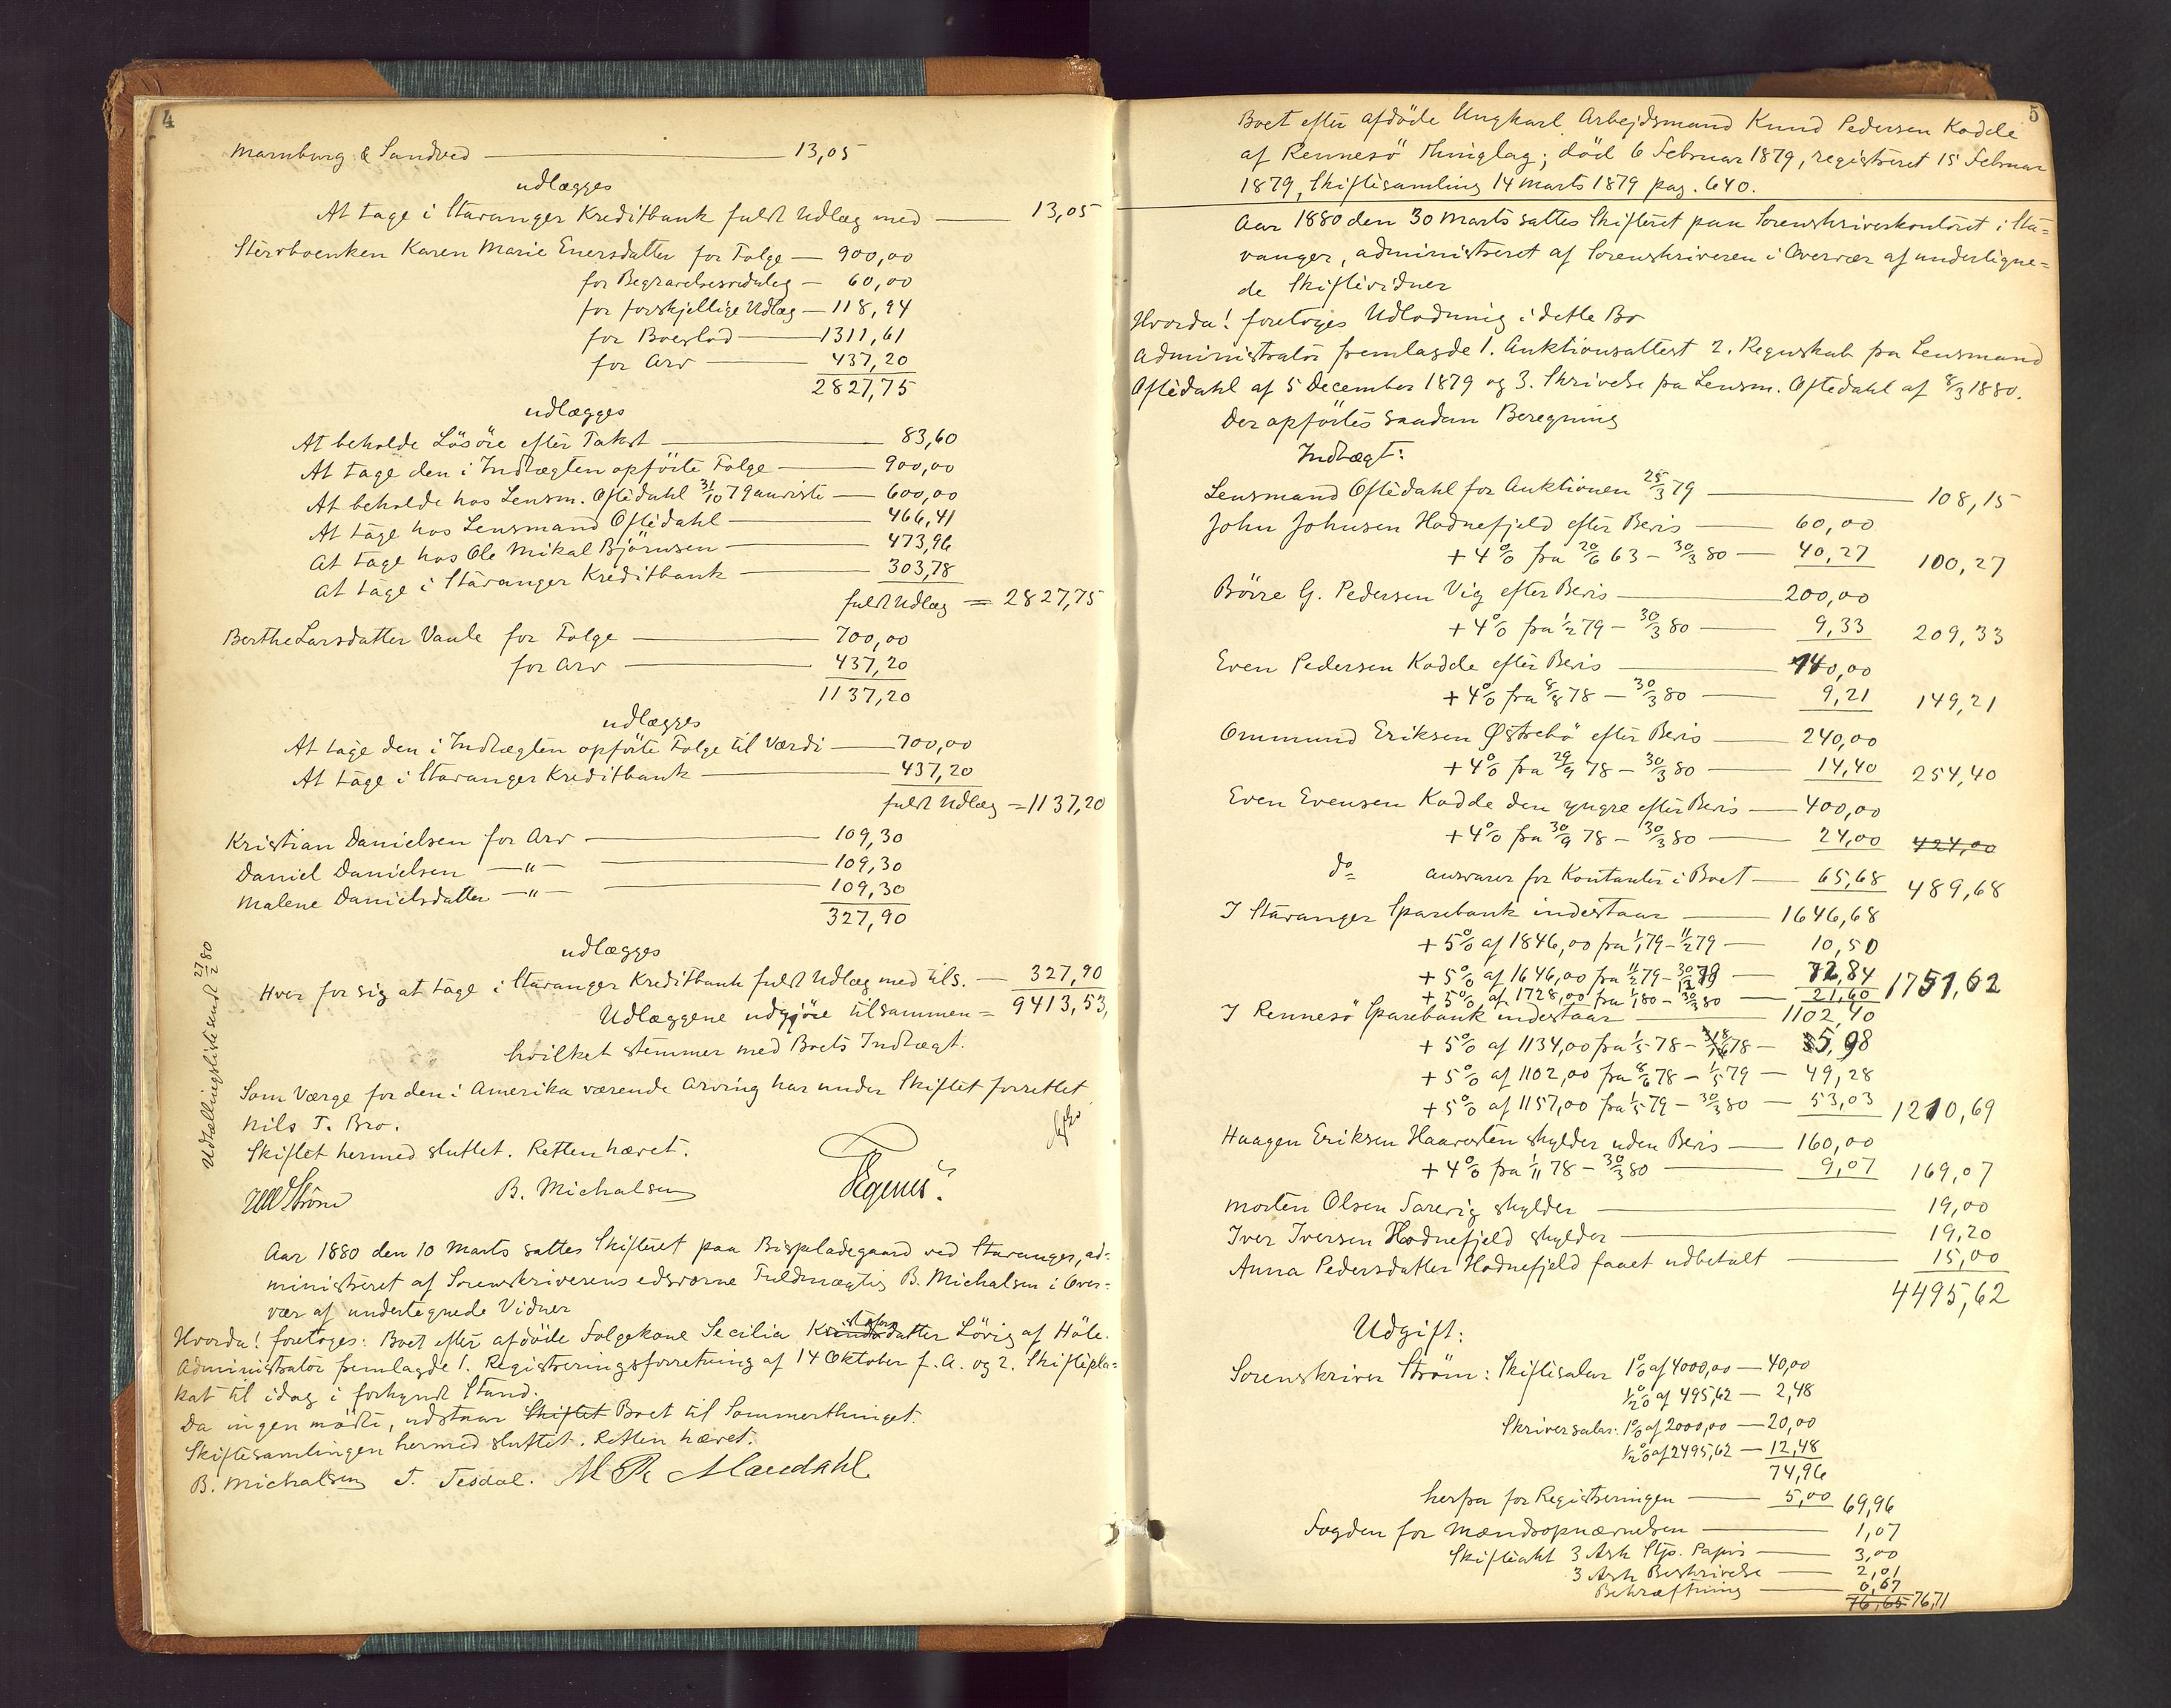 4
Marnburg & Sandved — 13,05
udlægges
At tage i Stavanger Kreditbank fuldt Udlæg med — 13,05
Stervboenken Karen Marie Enersdatter for Folge — 900,00
for Begravelsesudlæg — 60,00
for forskjellige Udlæg — 118,94
for Boeslod — 1311,61
for Arv — 437,20
2827,75
udlægges
At beholde Lösöre efter Takst — 83,60
At tage den i Indtægten opförte Folge — 900,00
At beholde hos Lensm. Oftedahl 31/10 79 anviste — 600,00
At tage hos Lensmand Oftedahl — 466,41
At tage hos Ole Mikal Björnsen — 473,96
At tage i Stavanger Kreditbank — 303,78
fuldt Udlæg = 2827,75
Berthe Larsdatter Vaule for Folge — 700,00
for Arv — 437,20
1137,20
udlægges
At tage den i Indtægten opförte Folge til Værdi — 700,00
At tage i Stavanger Kreditbank — 437,20
fuldt Udlæg = 1137,20
Kristian Danielsen for Arv — 109,30
Daniel Danielsen —"— 109,30
Malene Danielsdatter —"— 109,30
327,90
udlægges
Hver for sig at tage i Stavanger Kreditbank fuldt Udlæg med tils. — 327,90
Udlæggene udgjöre tilsammen = 9413,53,
hvilket stemmer med Boets Indtægt.
Som Værge for den i Amerika værende Arving har under Skiftet forrettet
Nils T. Bro.
Skiftet hermed sluttet. Retten hævet.
B. Michalsen
Udtællingsliste sendt 27/2 80
Aar 1880 den 10 Marts sattes Skifteret paa Bispeladegaard ved Stavanger, ad-
ministreret af Sorenskriverens edsvorne Fuldmægtig B. Michalsen i Over-
vær af undertegnede Vidner
Hvorda! foretoges: Boet efter afdöde Folgekone Secilia Knudsdatter Lövig af Höle.
Administrator fremlagde 1. Registreringsforretning af 14 Oktober f. A. og 2. Skiftepla-
kat til idag i forkyndt Stand.
Da ingen mödte, udstaar Skiftet Boet til Sommerthinget.
Skiftesamlingen hermed sluttet. Retten hævet.
B. Michalsen T. Tesdal. M Mandahl
5
Boet efter afdöde Ungkarl Arbejdsmand Knud Pedersen Kodde
af Rennesö Thinglag; död 6 Februar 1879, registreret 15 Februar
1879, Skiftesamling 14 Marts 1879 pag. 640.
Aar 1880 den 30 Marts sattes Skifteret paa Sorenskriverkontoret i Sta-
vanger, administreret af Sorenskriveren i Overvær af undertigne-
de Skiftevidner
Hvorda! foretoges Udlodning i dette Bo
Administrator fremlagde 1. Auktionsattest 2. Regnskab fra Lensmand
Oftedahl af 5 December 1879 og 3. Skrivelse fra Lensm. Oftedahl af 8/3 1880.
Der opförtes saadan Beregning
Indtægt:
Lensmand Oftedahl for Auktionen 25/3 79 — 108,15
John Johnsen Hodnefjeld efter Bevis — 60,00
+ 4% fra 20/6 63 – 30/3 80 — 40,27 100,27
Börre G. Pedersen Vig efter Bevis — 200,00
+ 4% fra 1/2 79 – 30/3 80 — 9,33 209,33
Even Pedersen Kodde efter Bevis — 140,00
+ 4% fra 8/8 78 – 30/3 80 — 9,21 149,21
Ommund Eriksen Østrebö efter Bevis — 240,00
+ 4% fra 29/9 78 – 30/3 80 — 14,40 254,40
Even Evensen Kodde den yngre efter Bevis — 400,00
+ 4% fra 30/9 78 – 30/3 80 — 24,00 424,00
do ansvarer for Kontanter i Boet — 65,68 489,68
I Stavanger Sparebank indestaar — 1646,68
+ 5% af 1846,00 fra 1/1 79 – 11/2 79 — 10,50
+ 5% af 1646,00 fra 11/2 79 – 30/12 79 — 72,84
+ 5% af 1728,00 fra 1/1 80 – 30/3 80 — 21,60 1751,62
I Rennesö Sparebank indestaar — 1102,40
+ 5% af 1134,00 fra 1/5 78 – 8/6 78 — 5,98
+ 5% af 1102,00 fra 8/6 78 – 1/5 79 — 49,28
+ 5% af 1157,00 fra 1/5 79 – 30/3 80 — 53,03 1210,69
Haagen Eriksen Haavesten skylder uden Bevis — 160,00
+ 4% fra 1/11 78 – 30/3 80 — 9,07 169,07
Morten Olsen Sarevig skylder — 19,00
Iver Iversen Hodnefjeld skylder — 19,20
Anna Pedersdatter Hodnefjeld faaet udbetalt — 15,00
4495,62
Udgift:
Sorenskriver Ström: Skiftesalær 1% af 4000,00 — 40,00
1/2% af 495,62 — 2,48
Skriversalær: 1% af 2000,00 — 20,00
1/2% af 2495,62 — 12,48
74,96
herfra for Registreringen — 5,00 69,96
Fogden for Mændsopnævnelsen — 1,07
Skifteakt 3 Ark Stp. Papir — 3,00
3 Ark Beskrivelse — 2,01
Bekræftning — 0,67
76,65 76,71